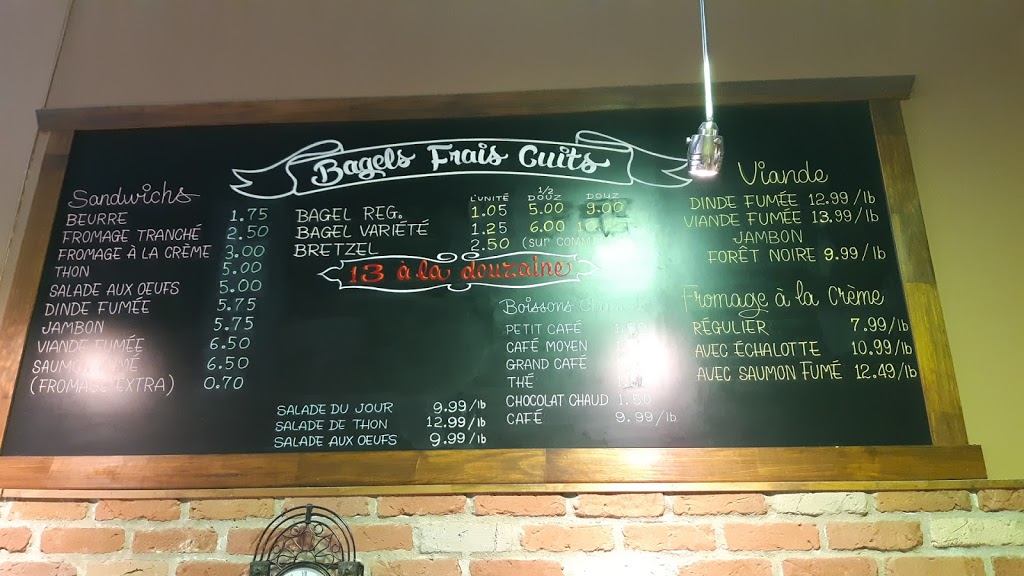 Bagels Frais Cuits
Sandwichs
BEURRE 1.75
FROMAGE TRANCHÉ 2.50
FROMAGE À LA CRÈME 3.00
THON 5.00
SALADE AUX OEUFS 5.00
DINDE FUMÉE 5.75
JAMBON 5.75
VIANDE FUMÉE 6.50
SAUMON FUMÉ 6.50
(FROMAGE EXTRA) 0.70
L'UNITÉ 1/2 DOUZ DOUZ
BAGEL REG. 1.05 5.00 9.00
BAGEL VARIÉTÉ 1.25 6.00
BRETZEL 2.50 (SUR
13 à la douzaine
SALADE DU JOUR 9.99/lb
SALADE DE THON 12.99/lb
SALADE AUX OEUFS 9.99/lb
Boissons
PETIT CAFÉ
CAFÉ MOYEN
GRAND CAFÉ
THÉ
CHOCOLAT CHAUD 1.50
CAFÉ 9.99/lb
Viande
DINDE FUMÉE 12.99/lb
VIANDE FUMÉE 13.99/lb
JAMBON
FORÊT NOIRE 9.99/lb
Fromage à la Crème
RÉGULIER 7.99/lb
AVEC ÉCHALOTTE 10.99/lb
AVEC SAUMON FUMÉ 12.49/lb